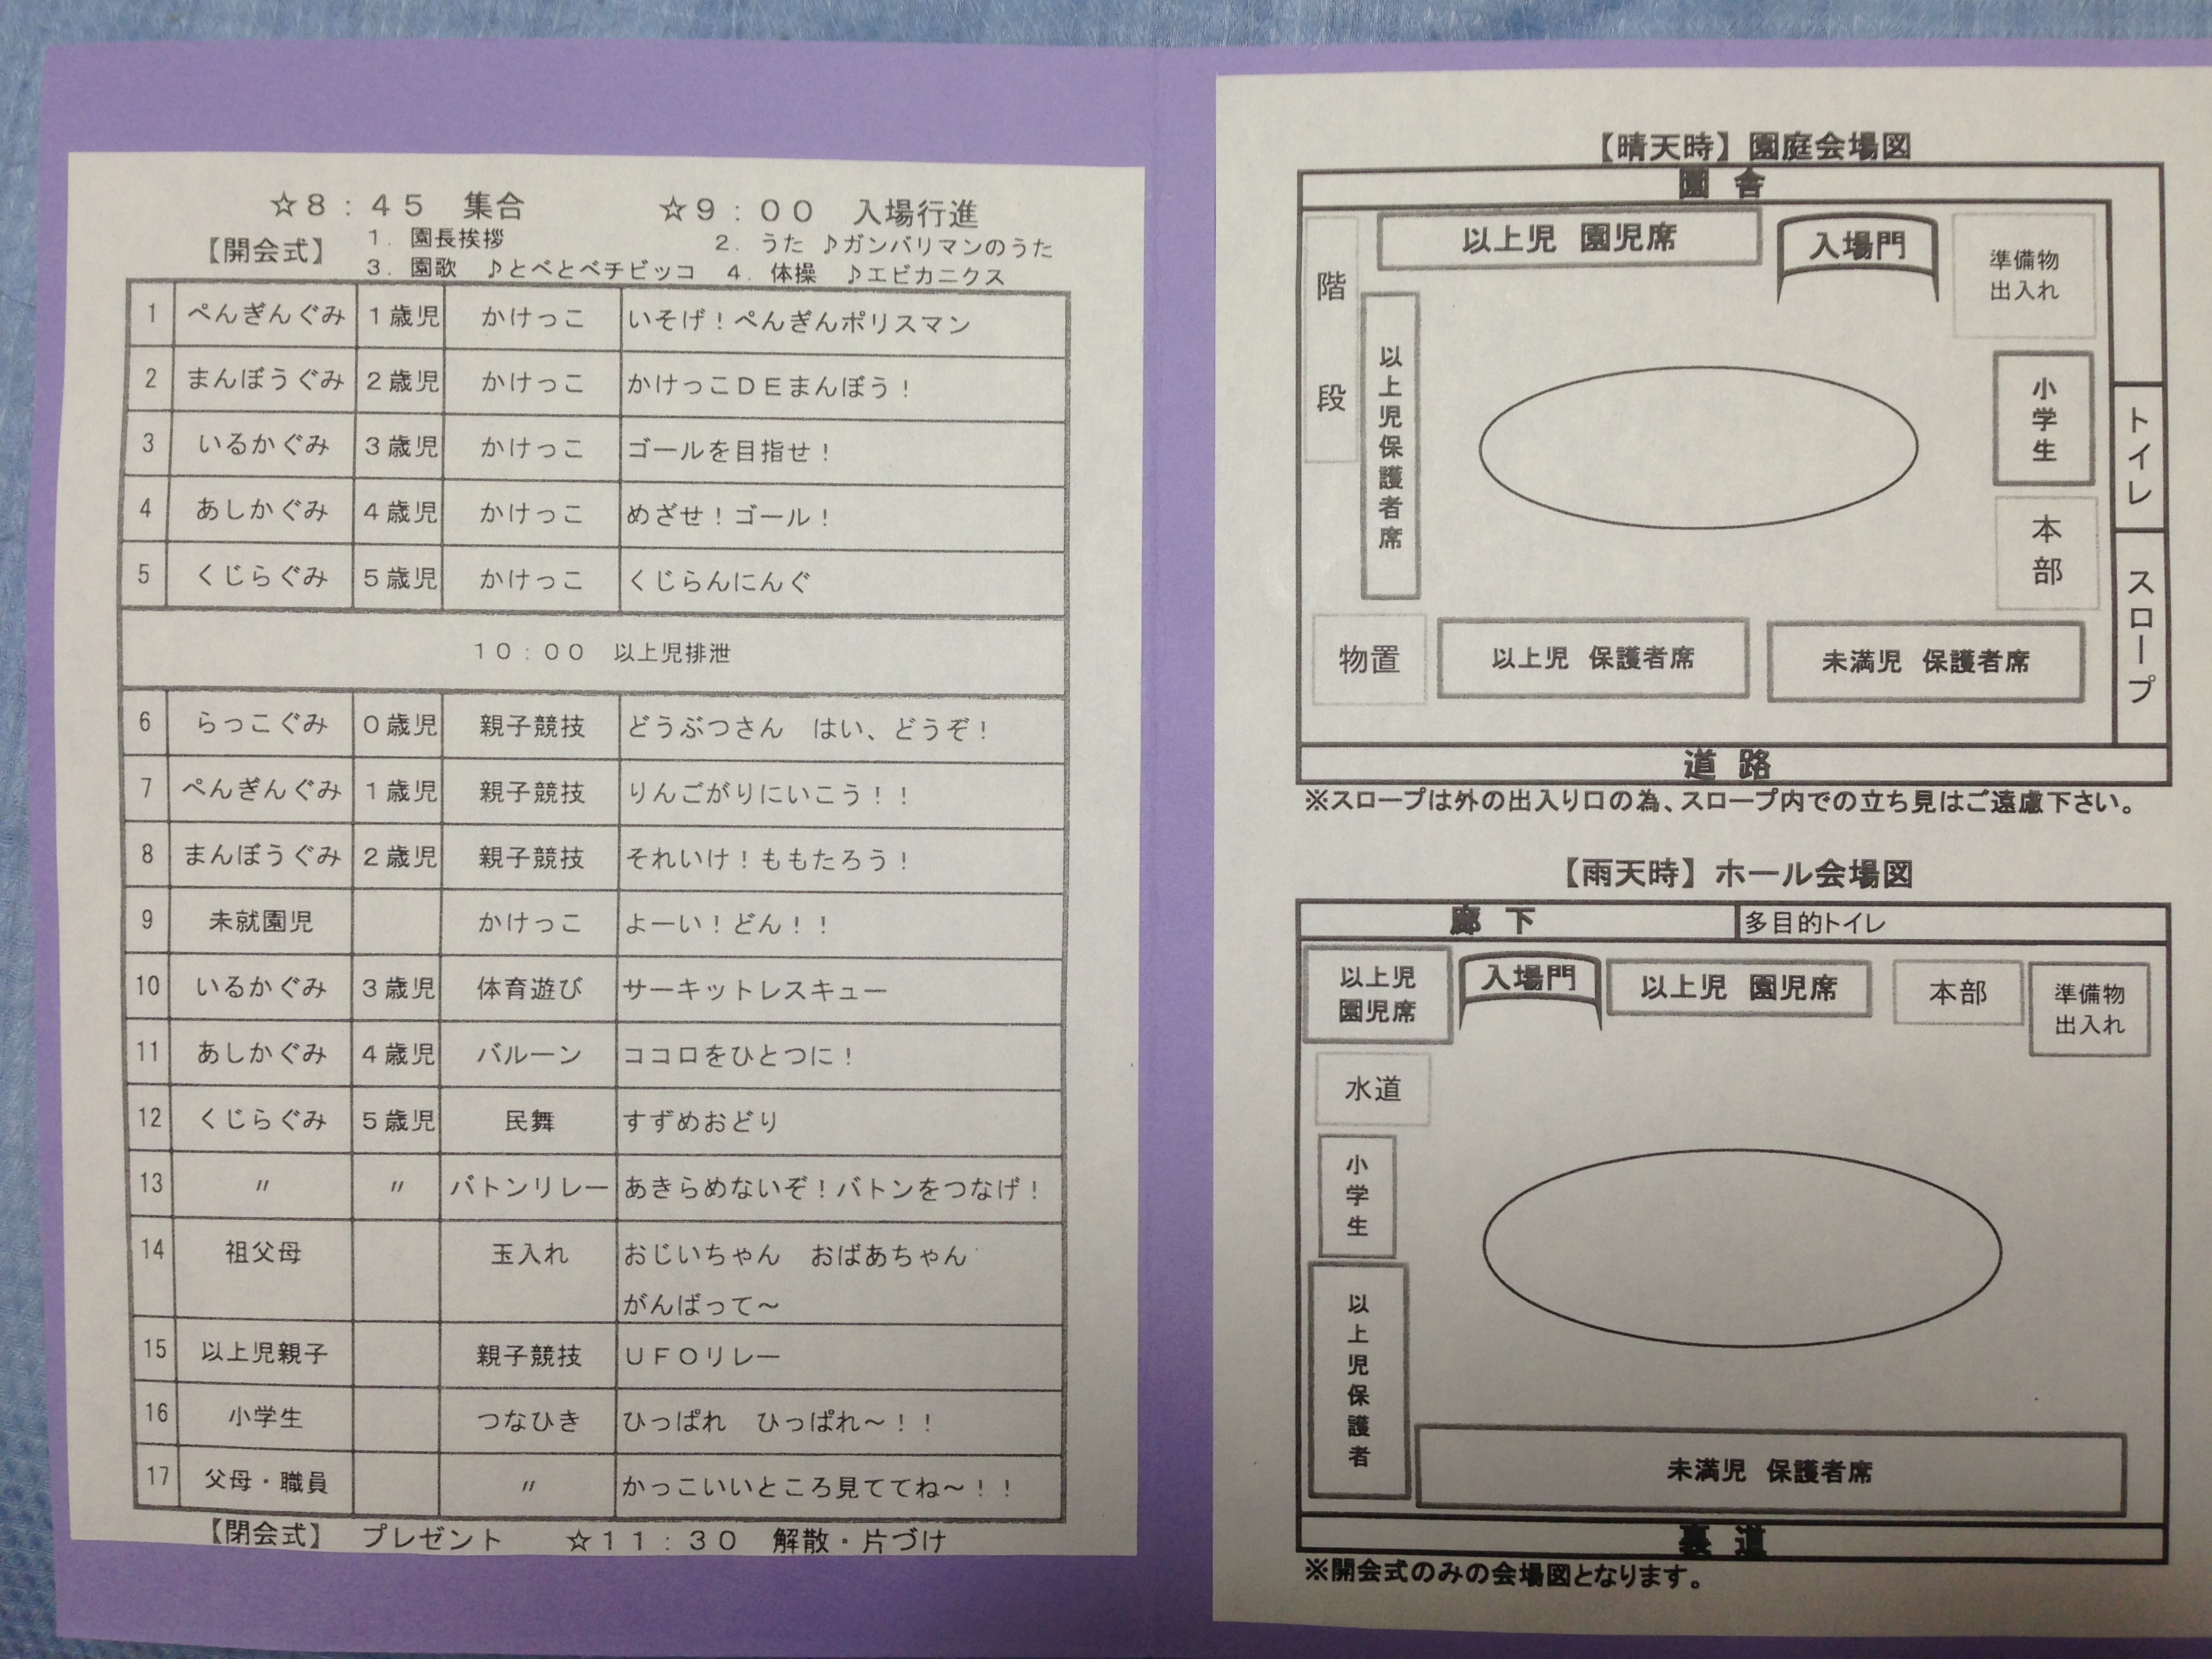 ☆8：45　集合　　☆9：00　入場行進
【開会式】　1．園長挨拶　　2．うた　♪ガンバリマンのうた
3．園歌　♪とべとべチビッコ　4．体操　♪エビカニクス
1　ぺんぎんぐみ　1歳児　かけっこ　いそげ！ぺんぎんポリスマン
2　まんぼうぐみ　2歳児　かけっこ　かけっこDEまんぼう！
3　いるかぐみ　3歳児　かけっこ　ゴールを目指せ！
4　あしかぐみ　4歳児　かけっこ　めざせ！ゴール！
5　くじらぐみ　5歳児　かけっこ　くじらんにんぐ
10：00　以上児排泄
6　らっこぐみ　0歳児　親子競技　どうぶつさん　はい、どうぞ！
7　ぺんぎんぐみ　1歳児　親子競技　りんごがりにいこう！！
8　まんぼうぐみ　2歳児　親子競技　それいけ！ももたろう！
9　未就園児　かけっこ　よーい！どん！！
10　いるかぐみ　3歳児　体育遊び　サーキットレスキュー
11　あしかぐみ　4歳児　バルーン　ココロをひとつに！
12　くじらぐみ　5歳児　民舞　すずめおどり
13　〃　〃　バトンリレー　あきらめないぞ！バトンをつなげ！
14　祖父母　玉入れ　おじいちゃん　おばあちゃん
がんばって～
15　以上児親子　親子競技　UFOリレー
16　小学生　つなひき　ひっぱれ　ひっぱれ～！！
17　父母・職員　〃　かっこいいところ見ててね～！！
【閉会式】　プレゼント　　☆11：30　解散・片づけ
【晴天時】園庭会場図
園舎
以上児　園児席
入場門
準備物
出入れ
階段
以上児保護者席
小学生
トイレ
本部
スロープ
物置
以上児　保護者席
未満児　保護者席
道路
※スロープは外の出入り口の為、スロープ内での立ち見はご遠慮下さい。
【雨天時】ホール会場図
廊下
多目的トイレ
以上児
園児席
入場門
以上児　園児席
本部
準備物
出入れ
水道
小学生
以上児保護者
未満児　保護者席
裏道
※開会式のみの会場図となります。